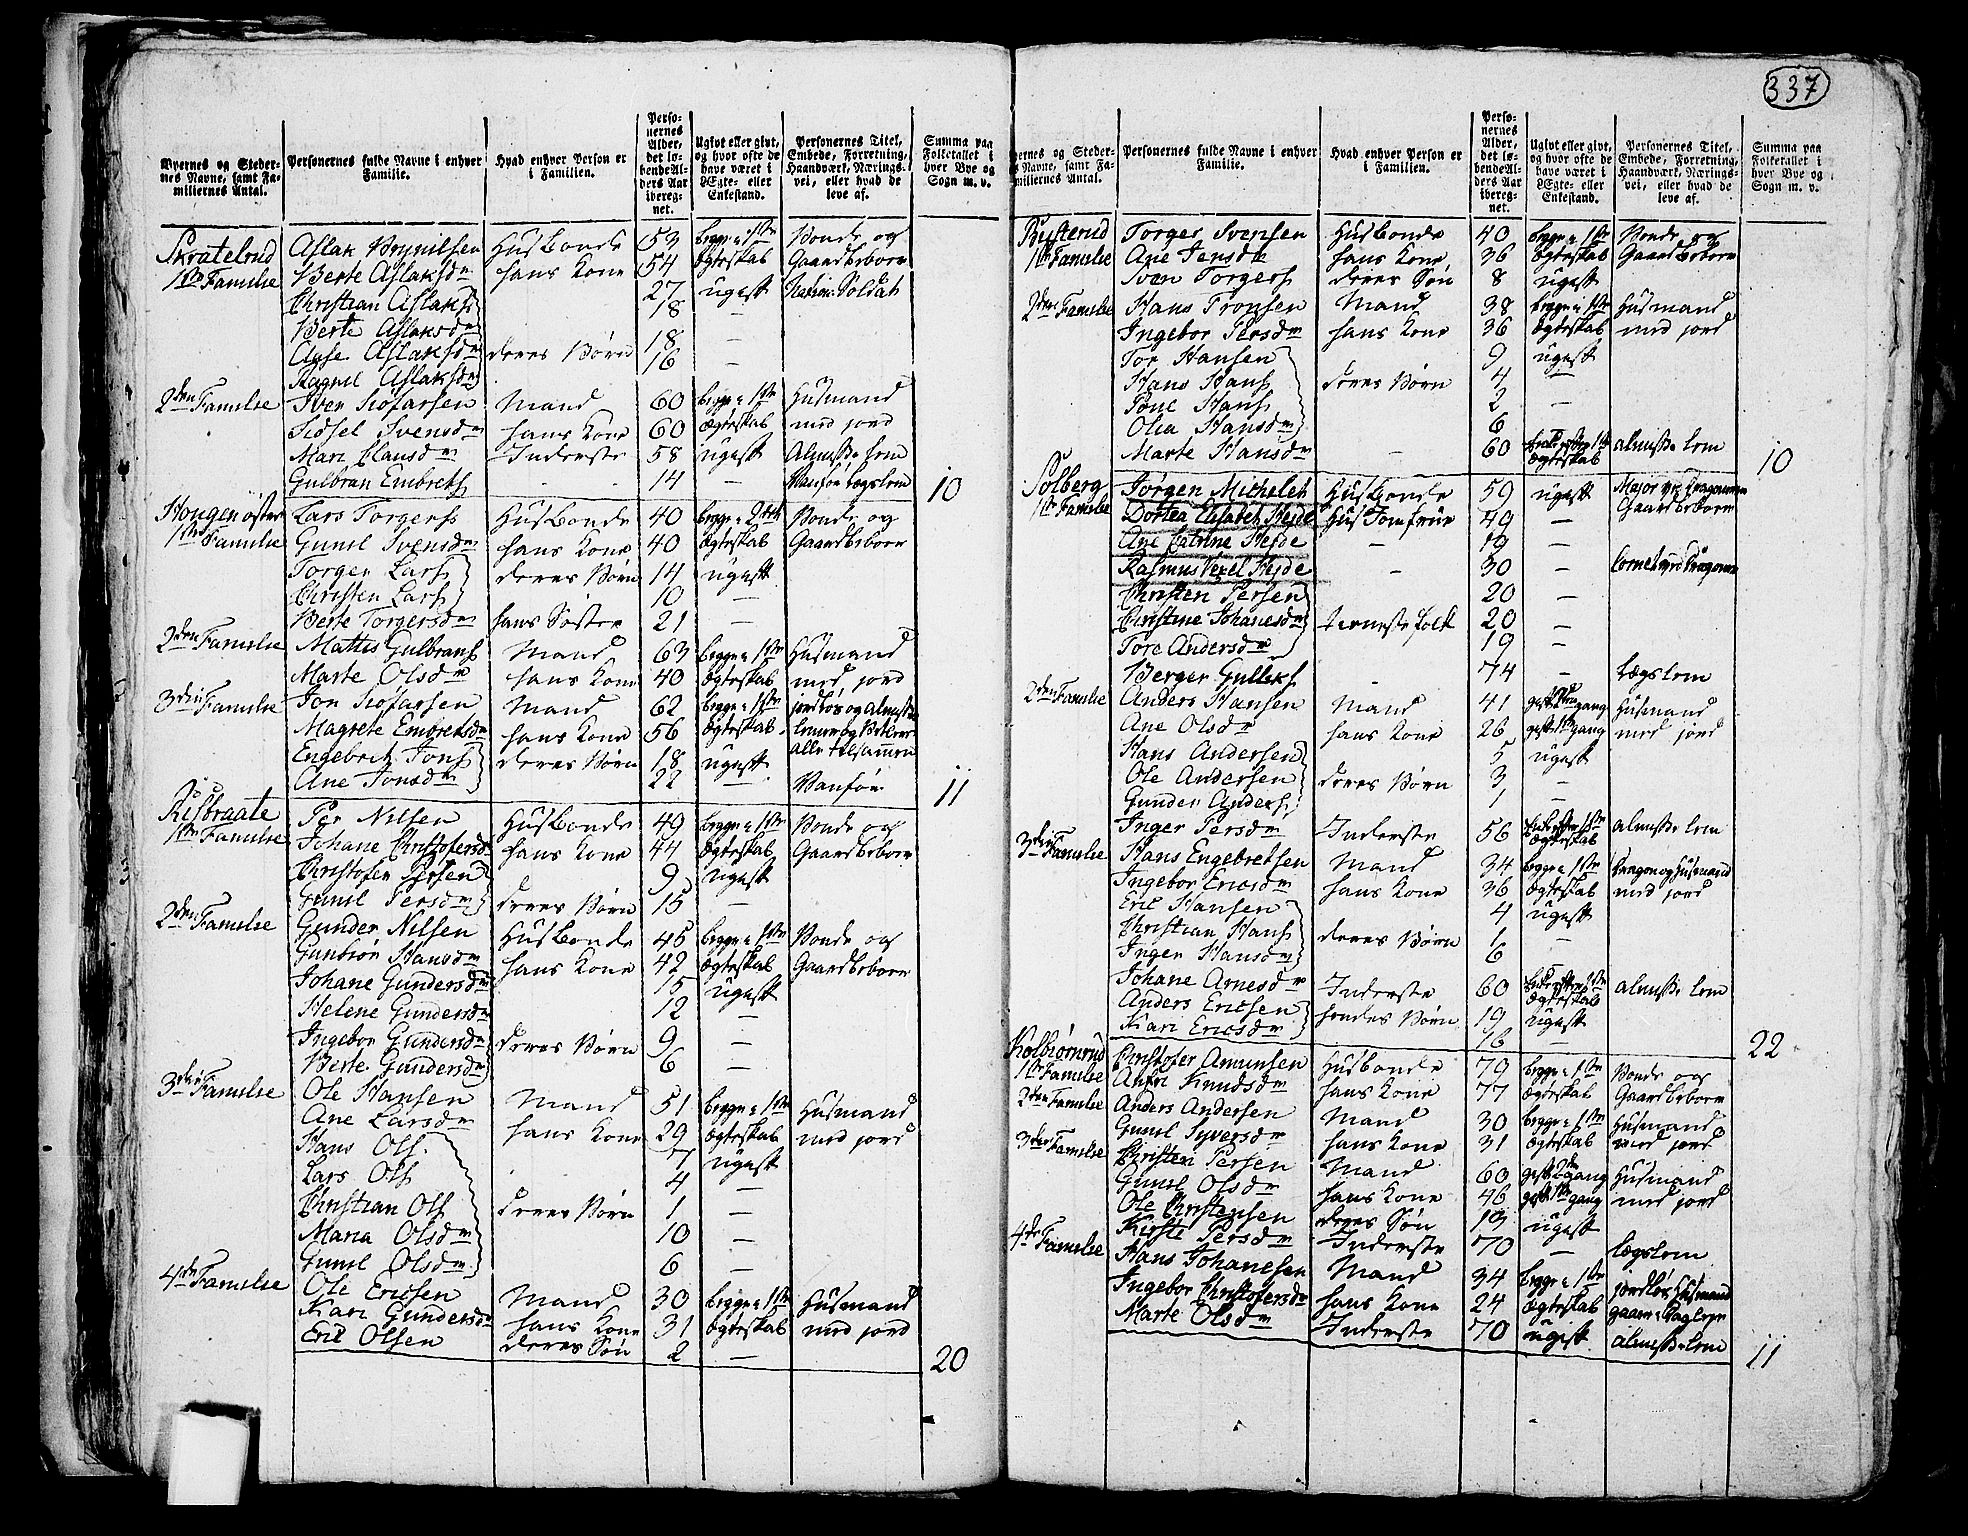 337
Byernes og Steder-
nes Navne, samt Fa-
miliernes Antal.
Personernes fulde Navne i enhver
Familie.
Hvad enhver Person er
i Familien.
Perso-
nernes
Alder,
det lø-
bende Al-
ders Aar
ibereg-
net.
Ugivt eller givt,
og hvor ofte de
have været i
Ægte- eller
Enkestand.
Personernes Titel,
Embede, Forretning,
Haandværk, Nærings-
vei, eller hvad de
leve af.
Summa paa
Folketallet i
hver Bye og
Sogn m. v.
Skratelrud Aslak Brynilsen Husbonde 53 begge i 1ste Bonde og
1ste Familie Berte Aslaksdr hans Kone 54 ægteskab Gaardbeboer
Christian Aslaks 27 ugift Soldat
Berte Aslaksdr 18
Aase Aslaksdr deres Børn 18 —
Ragnil Aslaksdr 16 —
2den Familie Iver Siofarsen Mand 60 begge i 1ste Husmand
Sidsel Svensdr hans Kone 60 ægteskab med jord
Mari Clausdr Inderste 58 ugift Almisse Lem
Gulbran Embrets 14 — Vanfør Lægslem 10
Hougen øster Lars Torgers Husbonde 40 begge i 2det Bonde og
1ste Familie Gunil Svensdr hans Kone 40 ægteskab Gaardbeboer
Torger Lars deres Børn 14 ugift
Christen Lars 10 —
Berte Torgersdr hans Søster 21 —
2den Familie Mattis Gulbrans Mand 63 begge i 1ste Husmand
Marte Olsdr hans Kone 40 ægteskab med jord
3die Familie Jon Siofarsen Mand 62 begge i 1ste jordløs og Almisse
Magrete Embretsdr hans Kone 56 ægteskab Lemer og Betlere
Engebret Jons deres Børn 18 ugift alle tilsammen
Ane Jonsdr 22 — Vanfør 11
Risbraate Per Nilsen Husbonde 49 begge i 1ste Bonde og
1ste Familie Johane Christofersdr hans Kone 44 ægteskab Gaardbeboer
Christofer Persen 9 ugift
Gunil Persdr deres Børn 15 —
2den Familie Gunder Nilsen Husbonde 45 begge i 1ste Bonde og
Gunbiør Hansdr hans Kone 42 ægteskab Gaardbeboer
Johane Gundersdr 15 ugift
Helene Gundersdr 12 —
Ingebor Gundersdr deres Børn 9 —
Berte Gundersdr 6 —
3die Familie Ole Hansen Mand 51 begge i 1ste Husmand
Ane Larsdr hans Kone 29 ægteskab med jord
Hans Ols 7 ugift
Lars Ols 4 —
Christian Ols deres Børn 1 —
Maria Olsdr 10 —
Gunil Olsdr 6 —
4de Familie Ole Ericsen Mand 30 begge i 1ste Husmand
Kari Gundersdr hans Kone 31 ægteskab med jord
Eric Olsen deres Søn 2 — 20
Byernes og Steder-
nes Navne, samt Fa-
miliernes Antal.
Personernes fulde Navne i enhver
Familie.
Hvad enhver Person er
i Familien.
Perso-
nernes
Alder,
det lø-
bende Al-
ders Aar
ibereg-
net.
Ugivt eller givt,
og hvor ofte de
have været i
Ægte- eller
Enkestand.
Personernes Titel,
Embede, Forretning,
Haandværk, Nærings-
vei, eller hvad de
leve af.
Summa paa
Folketallet i
hver Bye og
Sogn m. v.
Rysterud Torger Svensen Husbonde 40 begge i 1ste Bonde og
1ste Familie Ane Jensdr hans Kone 36 ægteskab Gaardbeboer
Sven Torgers deres Søn 8 ugift
2den Familie Hans Tronsen Mand 38 begge i 1ste Husmand
Ingebor Persdr hans Kone 36 ægteskab med jord
Tor Hansen 9 ugift
Hans Hans deres Børn 4 —
Poul Hans 2 —
Olia Hansdr 6
Marte Hansdr — 60 Enke efter 1ste ægteskab almisse Lem 10
Solberg Jørgen Michelet Husbonde 59 ugift Major ved Dragonerne
1ste Familie Dortea Elisabet Hejde Hus Jomfrue 49 — Gaardbeboer
Ane Catrine Hejde — 19 —
Rasmus Vexel Hejde — 30 — Cornet ved Dragonerne
Christen Persen 20 —
Christine Johanesdr Tieneste folk 20 —
Tore Andersdr 19 —
Berger Gulleks — 74 Lægslem
2den Familie Anders Hansen Mand 41 gift 2den gang Husmand
Ane Olsdr hans Kone 26 gift 1ste gang med jord
Hans Andersen 5 ugift
Ole Andersen deres Børn 3
Gunder Anders 1 —
Inger Persdr Inderste 56 Enke efter 1ste ægteskab almisse Lem
3die Familie Hans Engebretsen Mand 34 begge i 1ste Dragon og Husmand
Ingebor Ericsdr hans Kone 36 ægteskab med jord
Eric Hansen 4 ugift
Christian Hans deres Børn 1 —
Inger Hansdr 6
Johane Arnesdr Inderste 60 Enke efter 1ste ægteskab almisse Lem
Anders Ericsen hendes Børn 19 ugift
Kari Ericsdr 16 — 22
Kolbiørnrud Christofer Amunsen Husbonde 79 begge i 1ste Bonde og
1ste Familie Anne Knudsdr hans Kone 77 ægteskab Gaardbeboer
2den Familie Anders Andersen Mand 30 begge i 1ste Husmand
Gunil Syversdr hans Kone 31 ægteskab med jord
3die Familie Christen Persen Mand 60 gift 2den gang Husmand
Gunil Olsdr hans Kone 46 gift 1ste gang med jord
Ole Christensen deres Søn 13 ugift
Kirsti Persdr Inderste 70 — Lægslem
4de Familie Hans Johanesen Mand 34 begge i 1ste jordløs Husmand
Ingebor Christofersdr hans Kone 24 ægteskab gaaer i Dagleje
Marte Olsdr Inderste 70 ugift almisse Lem 11